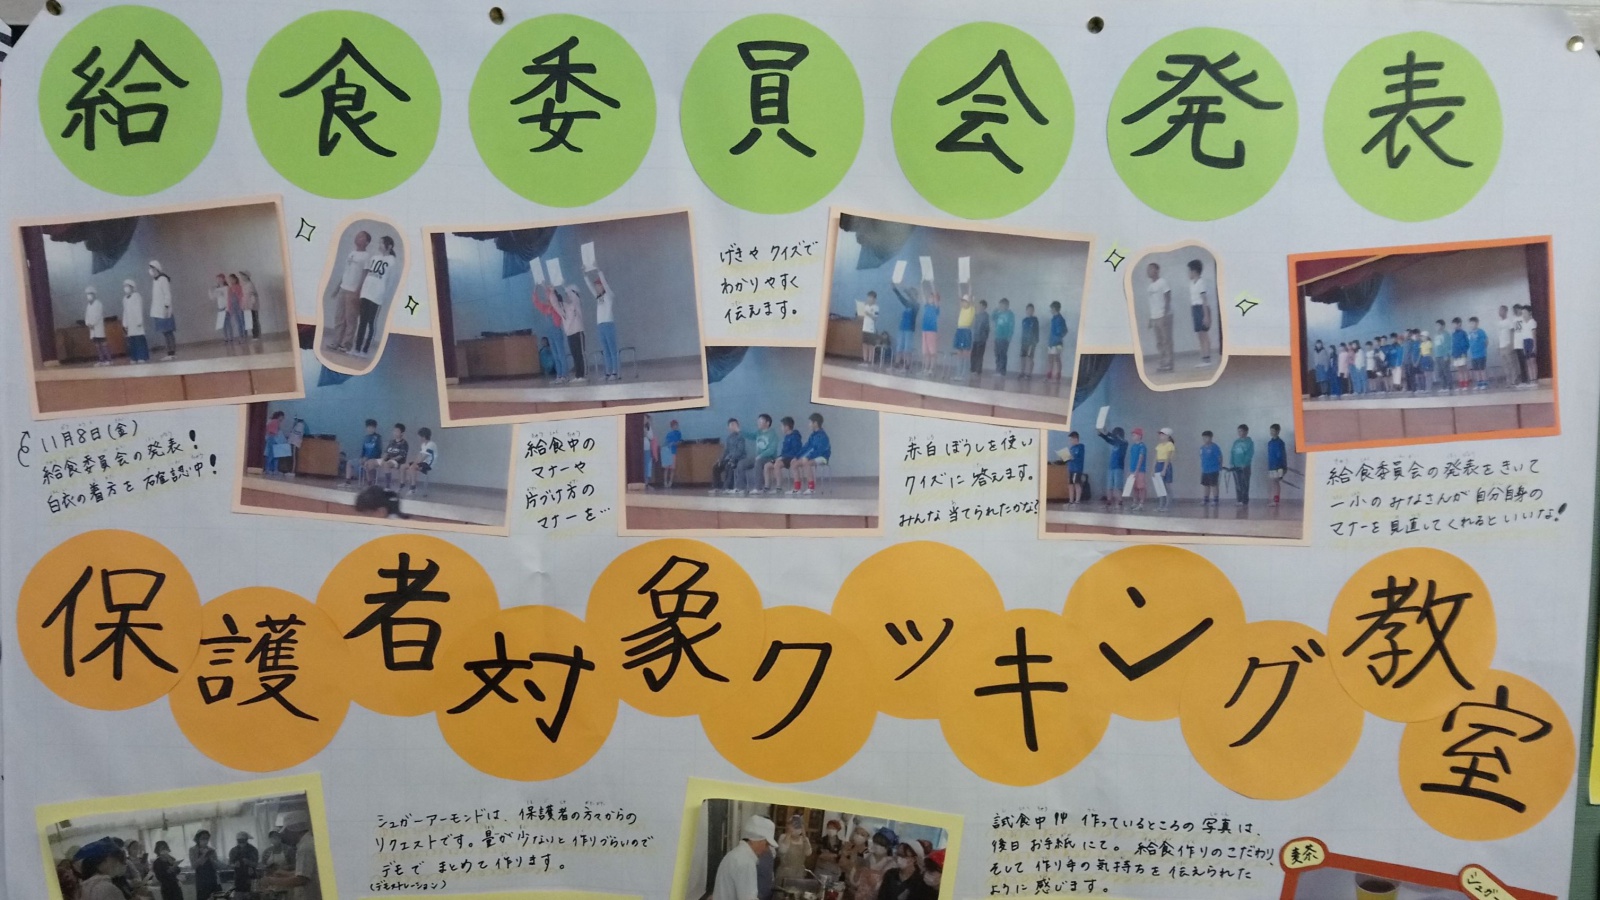 給食委員会発表
げきや クイズで
わかりやすく
伝えます。
11月8日(金)
給食委員会の発表!
白衣の着方を確認中!
給食中の
マナーや
片づけ方の
マナーを…
赤白ぼうしを使い
クイズに答えます。
みんな当てられたかな?
給食委員会の発表をきいて
一小のみなさんが自分自身の
マナーを見直してくれるといいな!
保護者対象クッキング教室
シュガーアーモンドは、保護者の方々からの
リクエストです。量が少ないと作りづらいので
デモで まとめて作ります。
(デモストレーション)
試食中!! 作っているところの写真は、
後日お手紙にて。給食作りのこだわり、
そして作り手の気持ちを伝えられた
ように感じます。
麦茶
シュガー